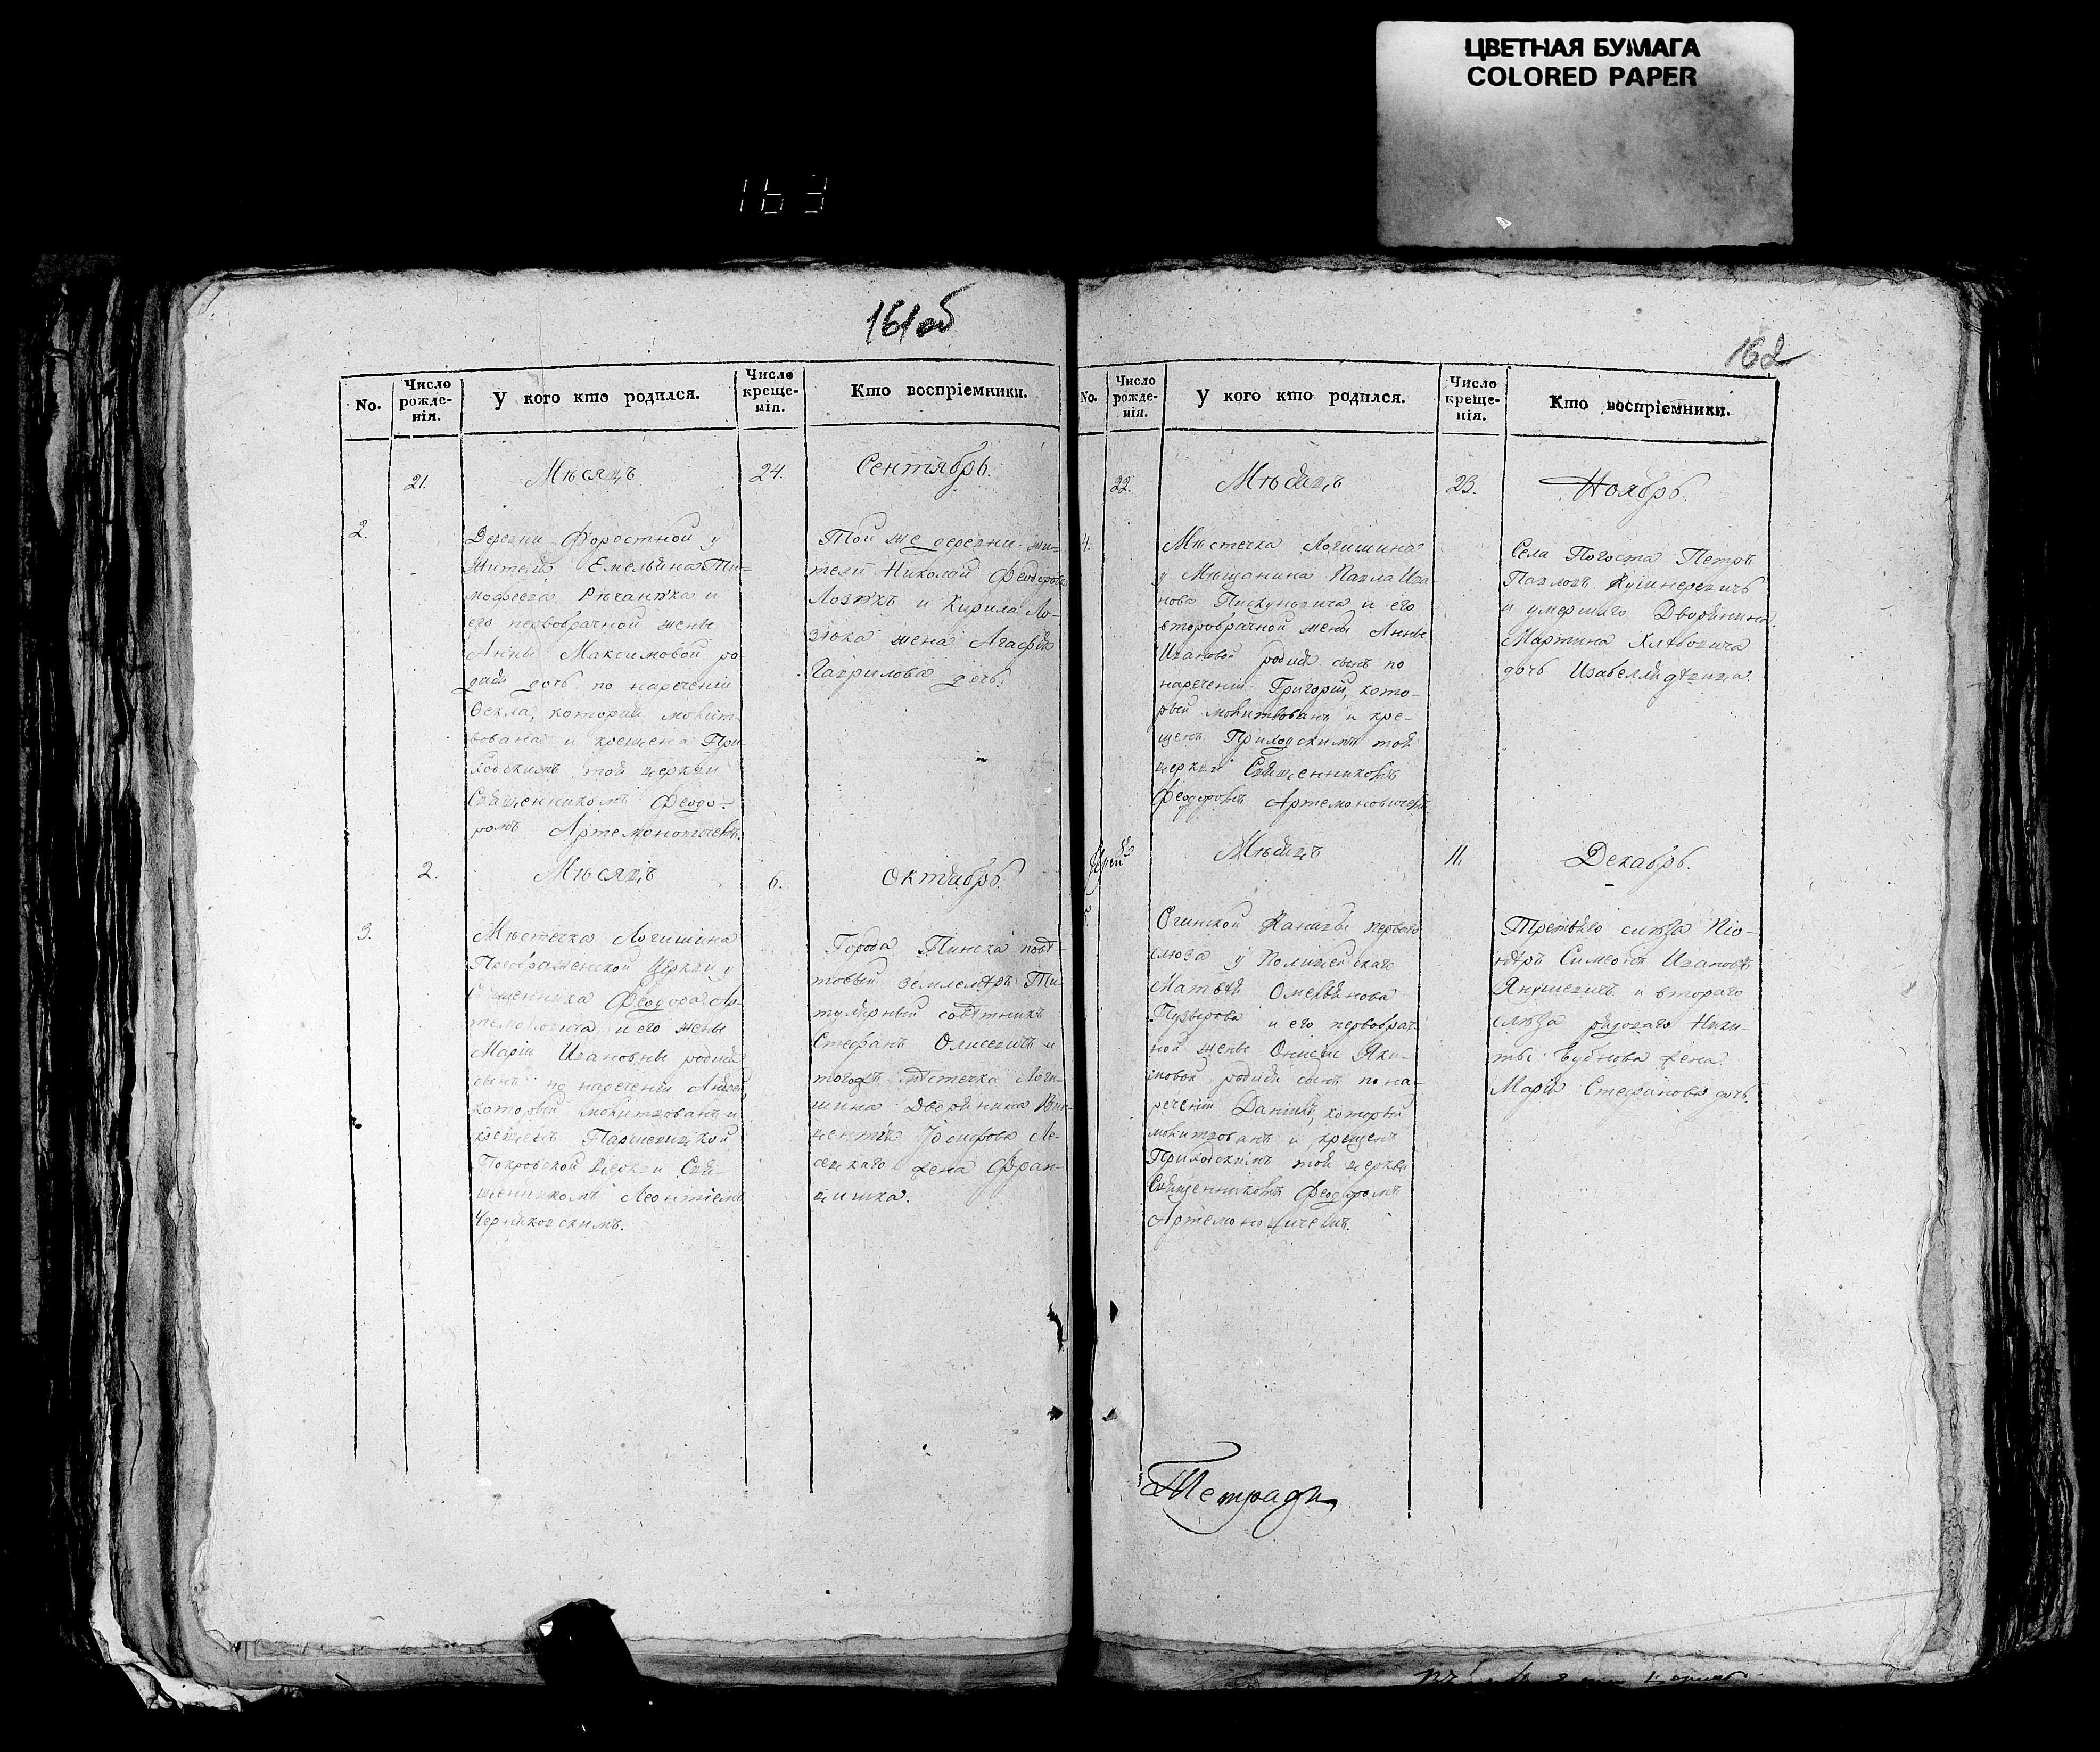 ЦВЕТНАЯ БУМАГА
COLORED PAPER
163
161об
No.
Число рожде-нія.
У кого кто родился.
Число креще-нія.
Кто воспріемники.
21.
Мѣсяцъ
24.
Сентябрь.
2.
Деревни Форостной у
жителя Емельяна Ти-
мофеева Рѣчанѣка и
его первобрачной жены
Анны Максимовой ро-
дися дочь по нареченіи
Ѳекла, которая молит-
вована и крещена При-
ходскимъ той церкви
Священникомъ Феодо-
ромъ Артемоновичемъ.
Той же деревни жи-
тели Николай Феодоровъ
и Кирила Ло-
зюка жена Агафія
Гаврилова дочь.
2.
Мѣсяцъ
6.
Октябрь.
3.
Мѣстечка Логишина
Преображенской Церкви у
Священника Феодора Ар-
темоновича и его жены
Маріи Ивановны родися
сынъ по нареченіи
который молитвованъ и
крещенъ
Покровской Церкви Свя-
щенникомъ Леонтіемъ
Черняковскимъ.
Города Пинска повѣ-
товый землемѣръ Ти-
тулярный совѣтникъ
Стефанъ и
тогожъ мѣстечка Логи-
шина Дворянина Вин-
центія Іосифова
жена Фран-
цишка.
162
No.
Число рожде-нія.
У кого кто родился.
Число креще-нія.
Кто воспріемники.
22.
Мѣсяцъ
23.
Ноябрь.
4.
Мѣстечка Логишина
у Мѣщанина Павла Ива-
нова Пискуновича и его
второбрачной жены Анны
Ивановой родися сынъ по
нареченіи Григорій, кото-
рый молитвованъ и кре-
щенъ Приходскимъ той
церкви Священникомъ
Феодоромъ Артемоновичемъ.
Села Погоста Петръ
Павловъ Кушнеревичъ
и умершаго Дворянина
Мартина
дочь Изабелла дѣвица.
Мѣсяцъ
11.
Декабрь.
5
Огинской Каналы перваго
слюза у
Матвѣя Омельянова
Пузырова и его первобрач-
ной жены Онисіи Яки-
мовой родися сынъ по на-
реченіи Даніилъ, который
молитвованъ и крещенъ
Приходскимъ той церкви
Священникомъ Феодоромъ
Артемоновичемъ.
Третьяго слюза Піо-
нѣръ Симеонъ Ивановъ
Янушевичъ и втораго
слюза рядоваго Ники-
ты Бубнова жена
Марія Стефанова дочь.
Тетради